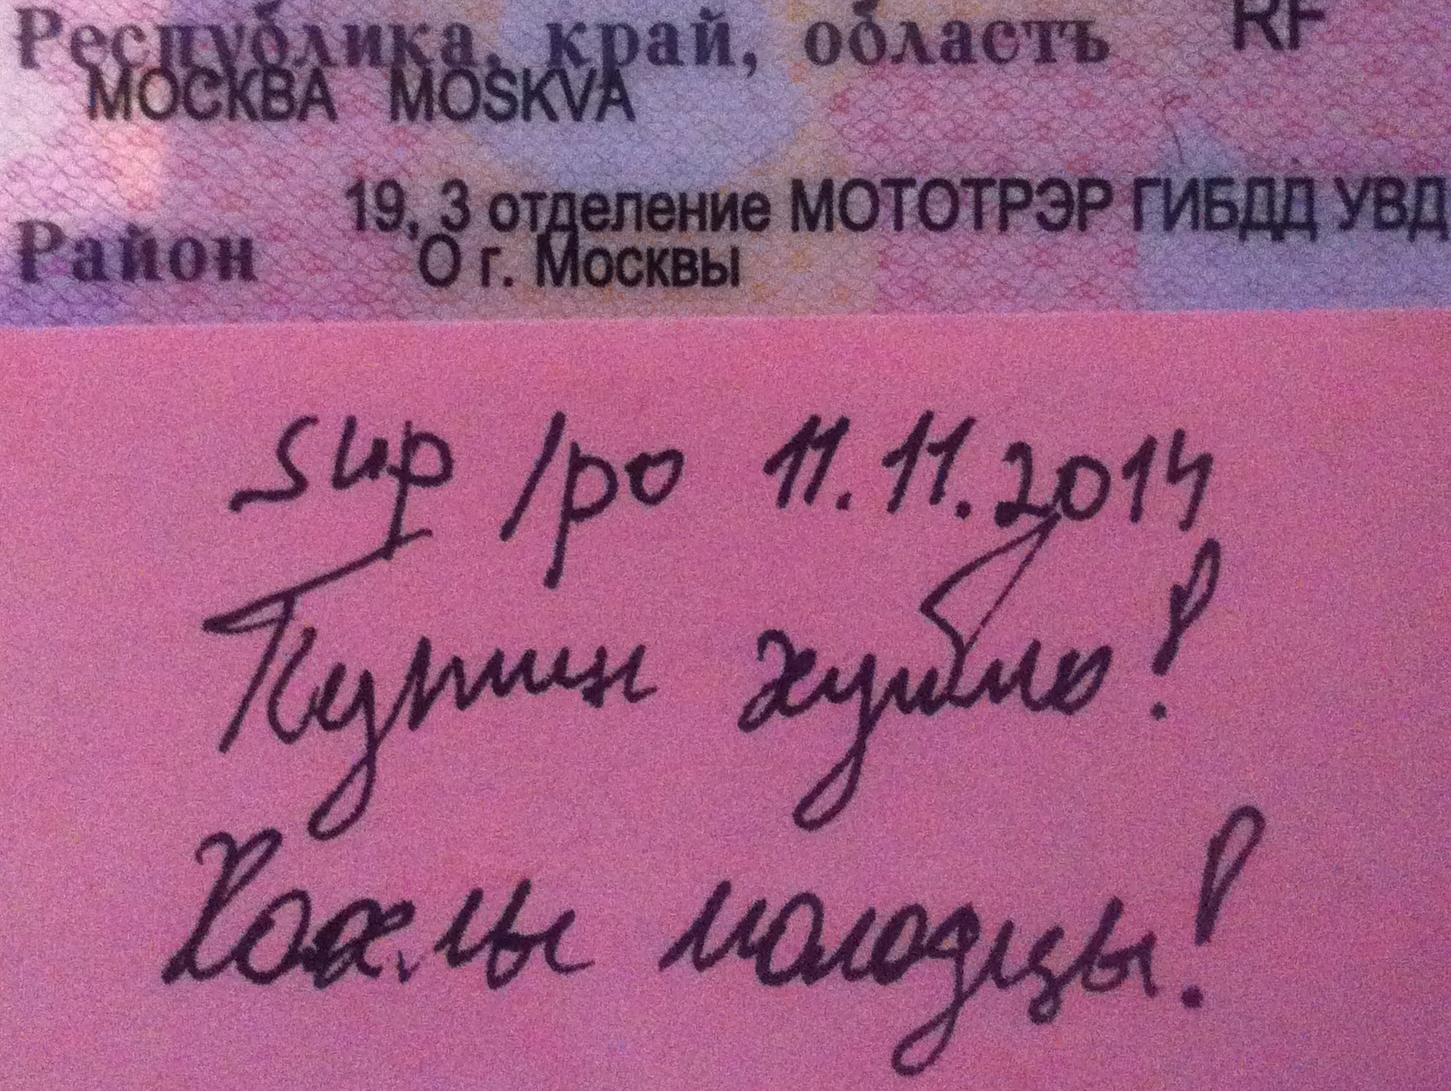 Республика, край, область RF
МОСКВА MOSKVA
19, 3 отделение МОТОТРЭР ГИБДД УВД
Район О г. Москвы
sup /po 11.11.2014
Путин хуйло!
Хохлы молодцы!